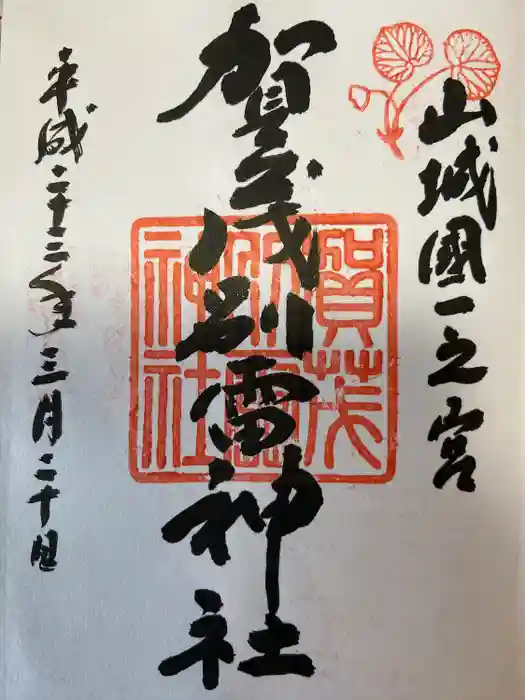 山城國一之宮
賀茂別雷神社
賀茂別雷神社
平成二十二年三月二十日